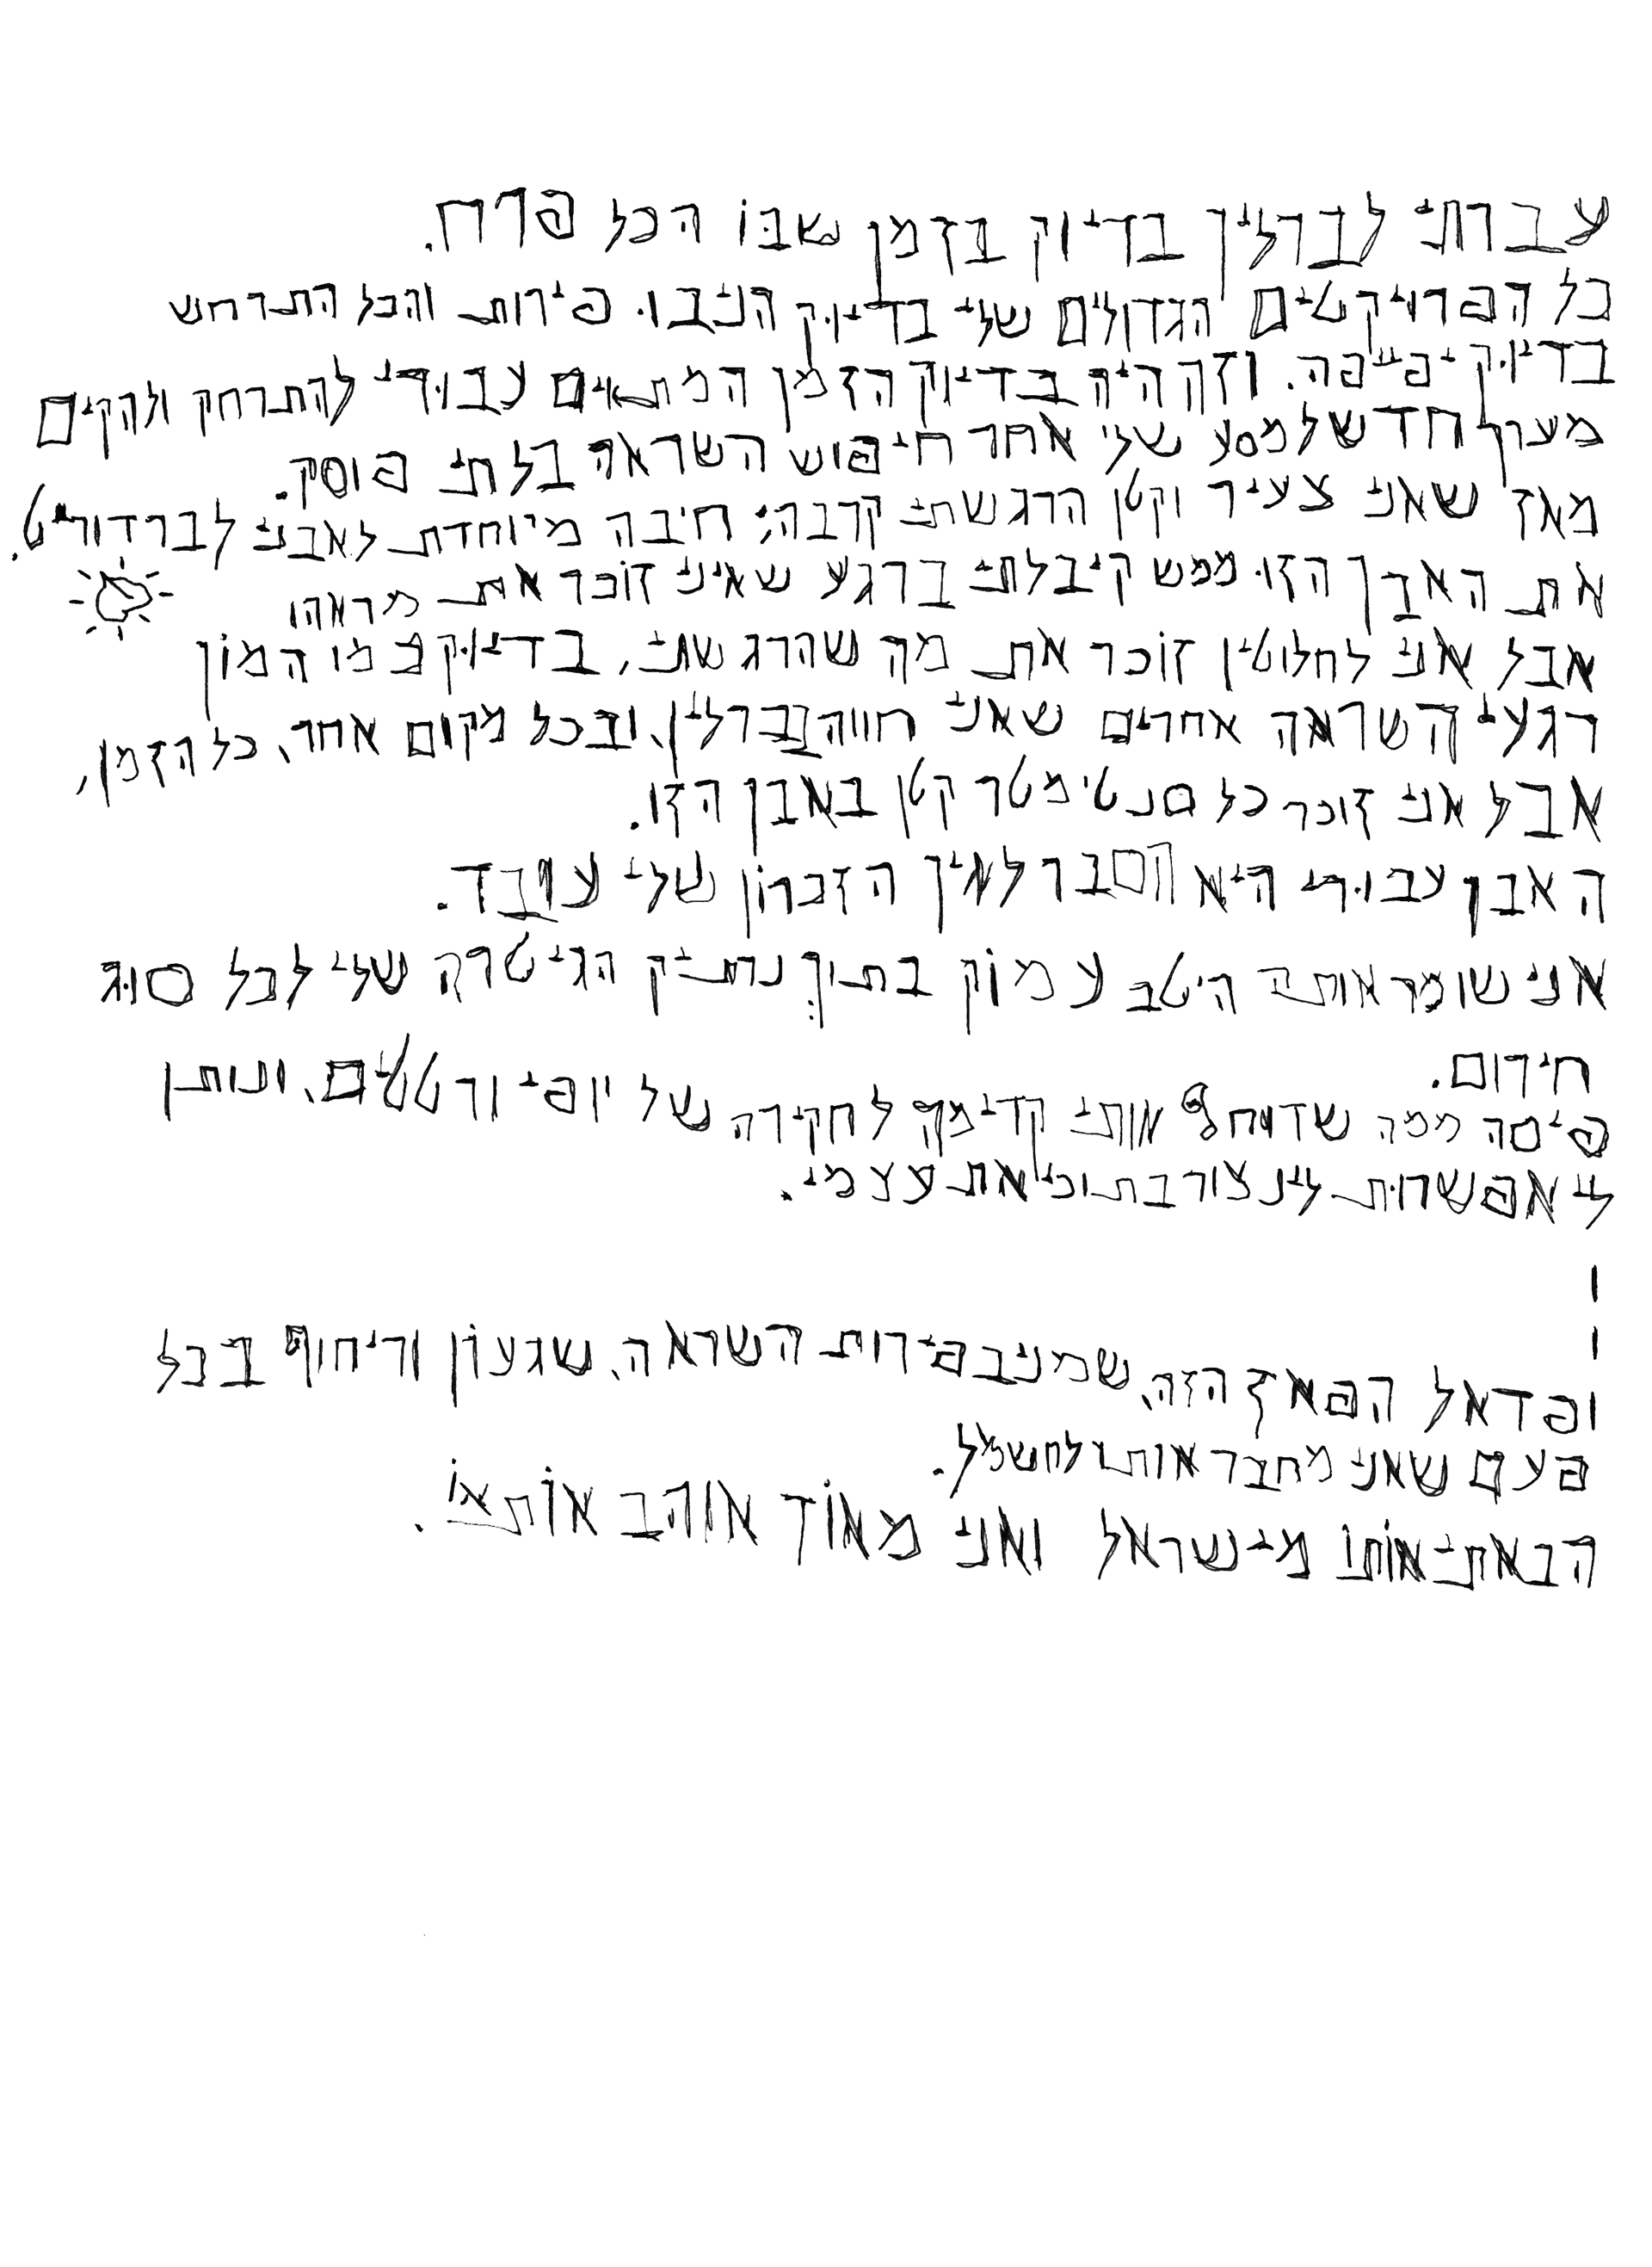 עברתי לברלין בדיוק בזמן שבו הכל פרח.
כל הפרויקטים הגדולים שלי בדיוק הניבו פירות והכל התרחש
בדיוק יפייפה. וזה היה בדיוק הזמן המתאים עבורי להתרחק ולהקים
מערך חדש למסע שלי אחר חיפוש השראה בלתי פוסק.
מאז שאני צעיר וקטן הרגשתי קרבה; חיבה מיוחדת לאבני לברדוריט.
את האבן הזו ממש קיבלתי ברגע שאיני זוכר את מראהו
אבל אני לחלוטין זוכר את מה שהרגשתי, בדיוק כמו המון
רגעי השראה אחרים שאני חווה בברלין, ובכל מקום אחר, כל הזמן,
אבל אני זוכר כל סנטימטר קטן באבן הזו.
האבן עבורי היא הסבר לאיך הזכרון שלי עובד.
אני שומר אותה היטב עמוק בתוך נרתיק הגיטרה שלי לכל סוג
חירום.
פיסה ממה שדוחף אותי קדימה לחקירה של יופי ורטטים, ונותן
לי אפשרות לינצור בתוכי את עצמי.
ו
ו
ופדאל הפאז הזה, שמניב פירות השראה, שגעון וריחוף בכל
פעם שאני מחבר אותו לחשמל.
הבאתי אותו מישראל ואני מאוד אוהב אותו.